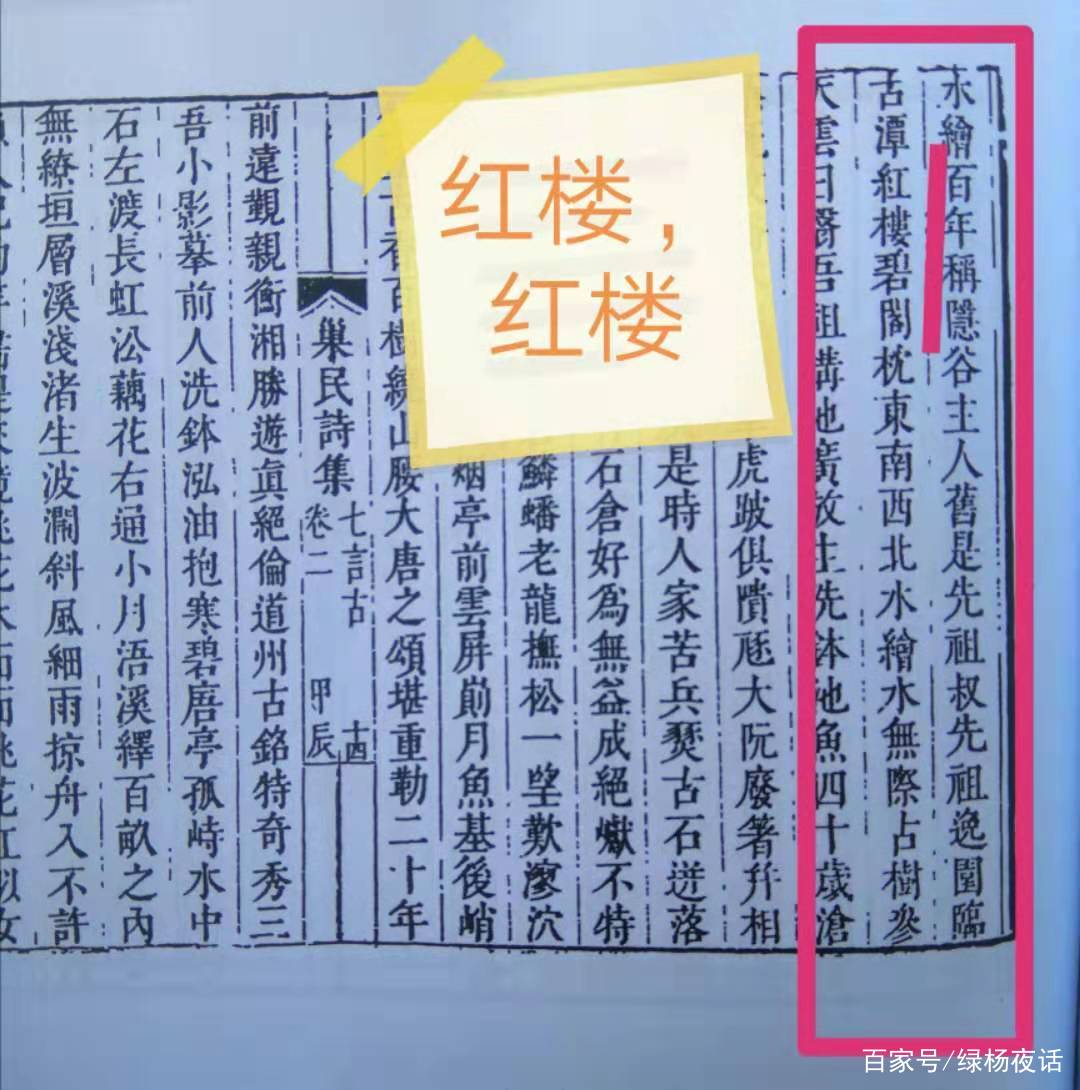 水繪百年稱隱谷主人舊是先祖叔先祖逸園臨
古潭紅樓碧閣枕東南西北水繪水無際占樹參
天雲日翳吾祖構池廣放生洗鉢池魚四十歲滄
虎跛俱隤
大阮廢箸幷相
是時人家苦兵燹古石迸落
石倉好為無益成絕巘不特
鱗蟠老龍撫松一望歎寥泬
烟亭前雲屏前月魚基後峭
百樹繞山腰大唐之頌堪重勒二十年
巢民詩集
卷二
七言古
甲辰
前遠覲親衡湘勝遊眞絕倫道州古銘特奇秀三
吾小影摹前人洗鉢泓油抱寒碧唐亭孤峙水中
石左渡長虹沿藕花右通小月浯溪繹百畝之內
無繚垣層溪淺渚生波瀾斜風細雨掠舟入不許
红楼，
红楼
百家号/绿杨夜话